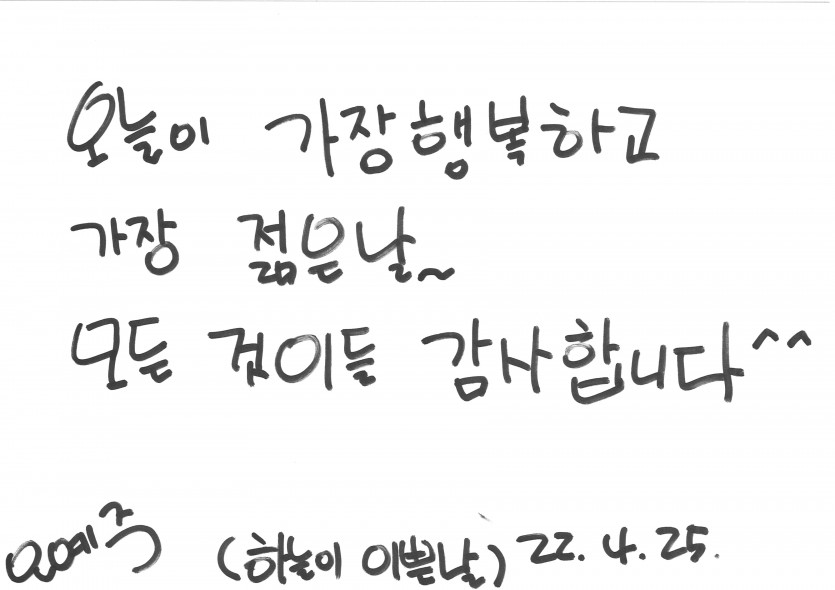 오늘이 가장 행복하고
가장 젊은날~
모든 것이들 감사합니다^^
(하늘이 이쁜날) 22. 4. 25.